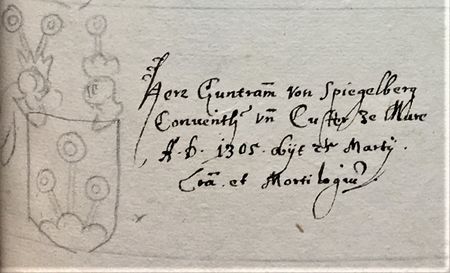 Herr Guntram̃ von Spiegelberg
Conventhꝰ vñ Custer ze Mure
A. D. 1305. obijt Martij.
et Mortilogiũ